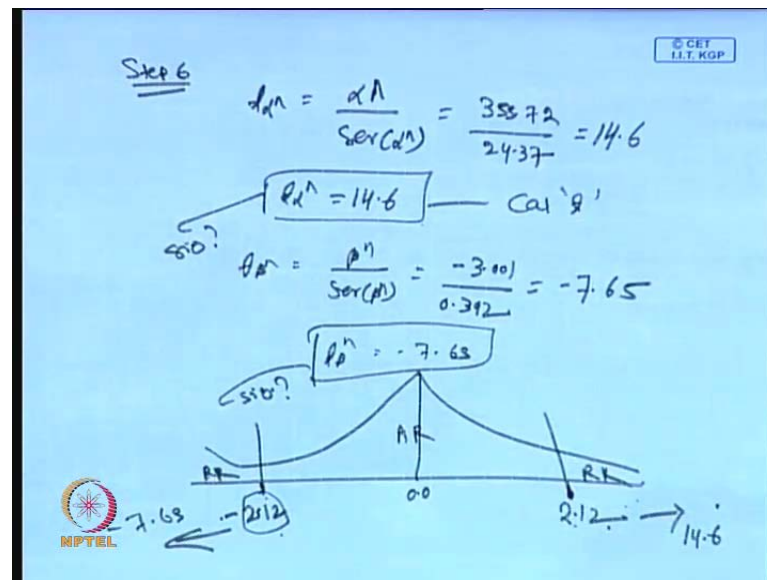 © CET
I.I.T. KGP
Step 6
tα^ = α^ / Ser(α^) = 355.72 / 24.37 = 14.6
tα^ = 14.6 — Cal 't'
sig?
tβ^ = β^ / Ser(β^) = -3.001 / 0.392 = -7.65
tβ^ = -7.63
sig?
AR
RR
RR
0.0
-7.63
-2.12
2.12
14.6
NPTEL